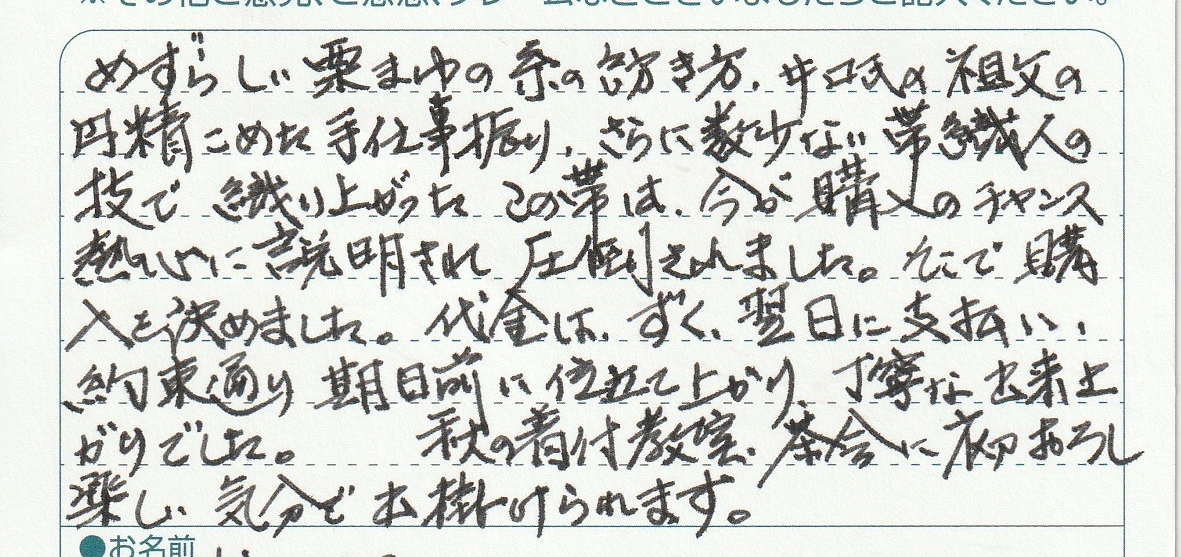 めずらしい栗まゆの糸の紡ぎ方、井口氏の祖父の
円精こめた手仕事振り、さらに数少ない帯織人の
技で織り上がったこの帯は、今が購入のチャンス
熱心に説明され圧倒されました。そこで購
入を決めました。代金は、すぐ、翌日に支払い、
約束通り期日前に仕立て上がり、丁寧な出来上
がりでした。 秋の着付教室、茶会に初おろし
楽しい気分で出掛けられます。
●お名前